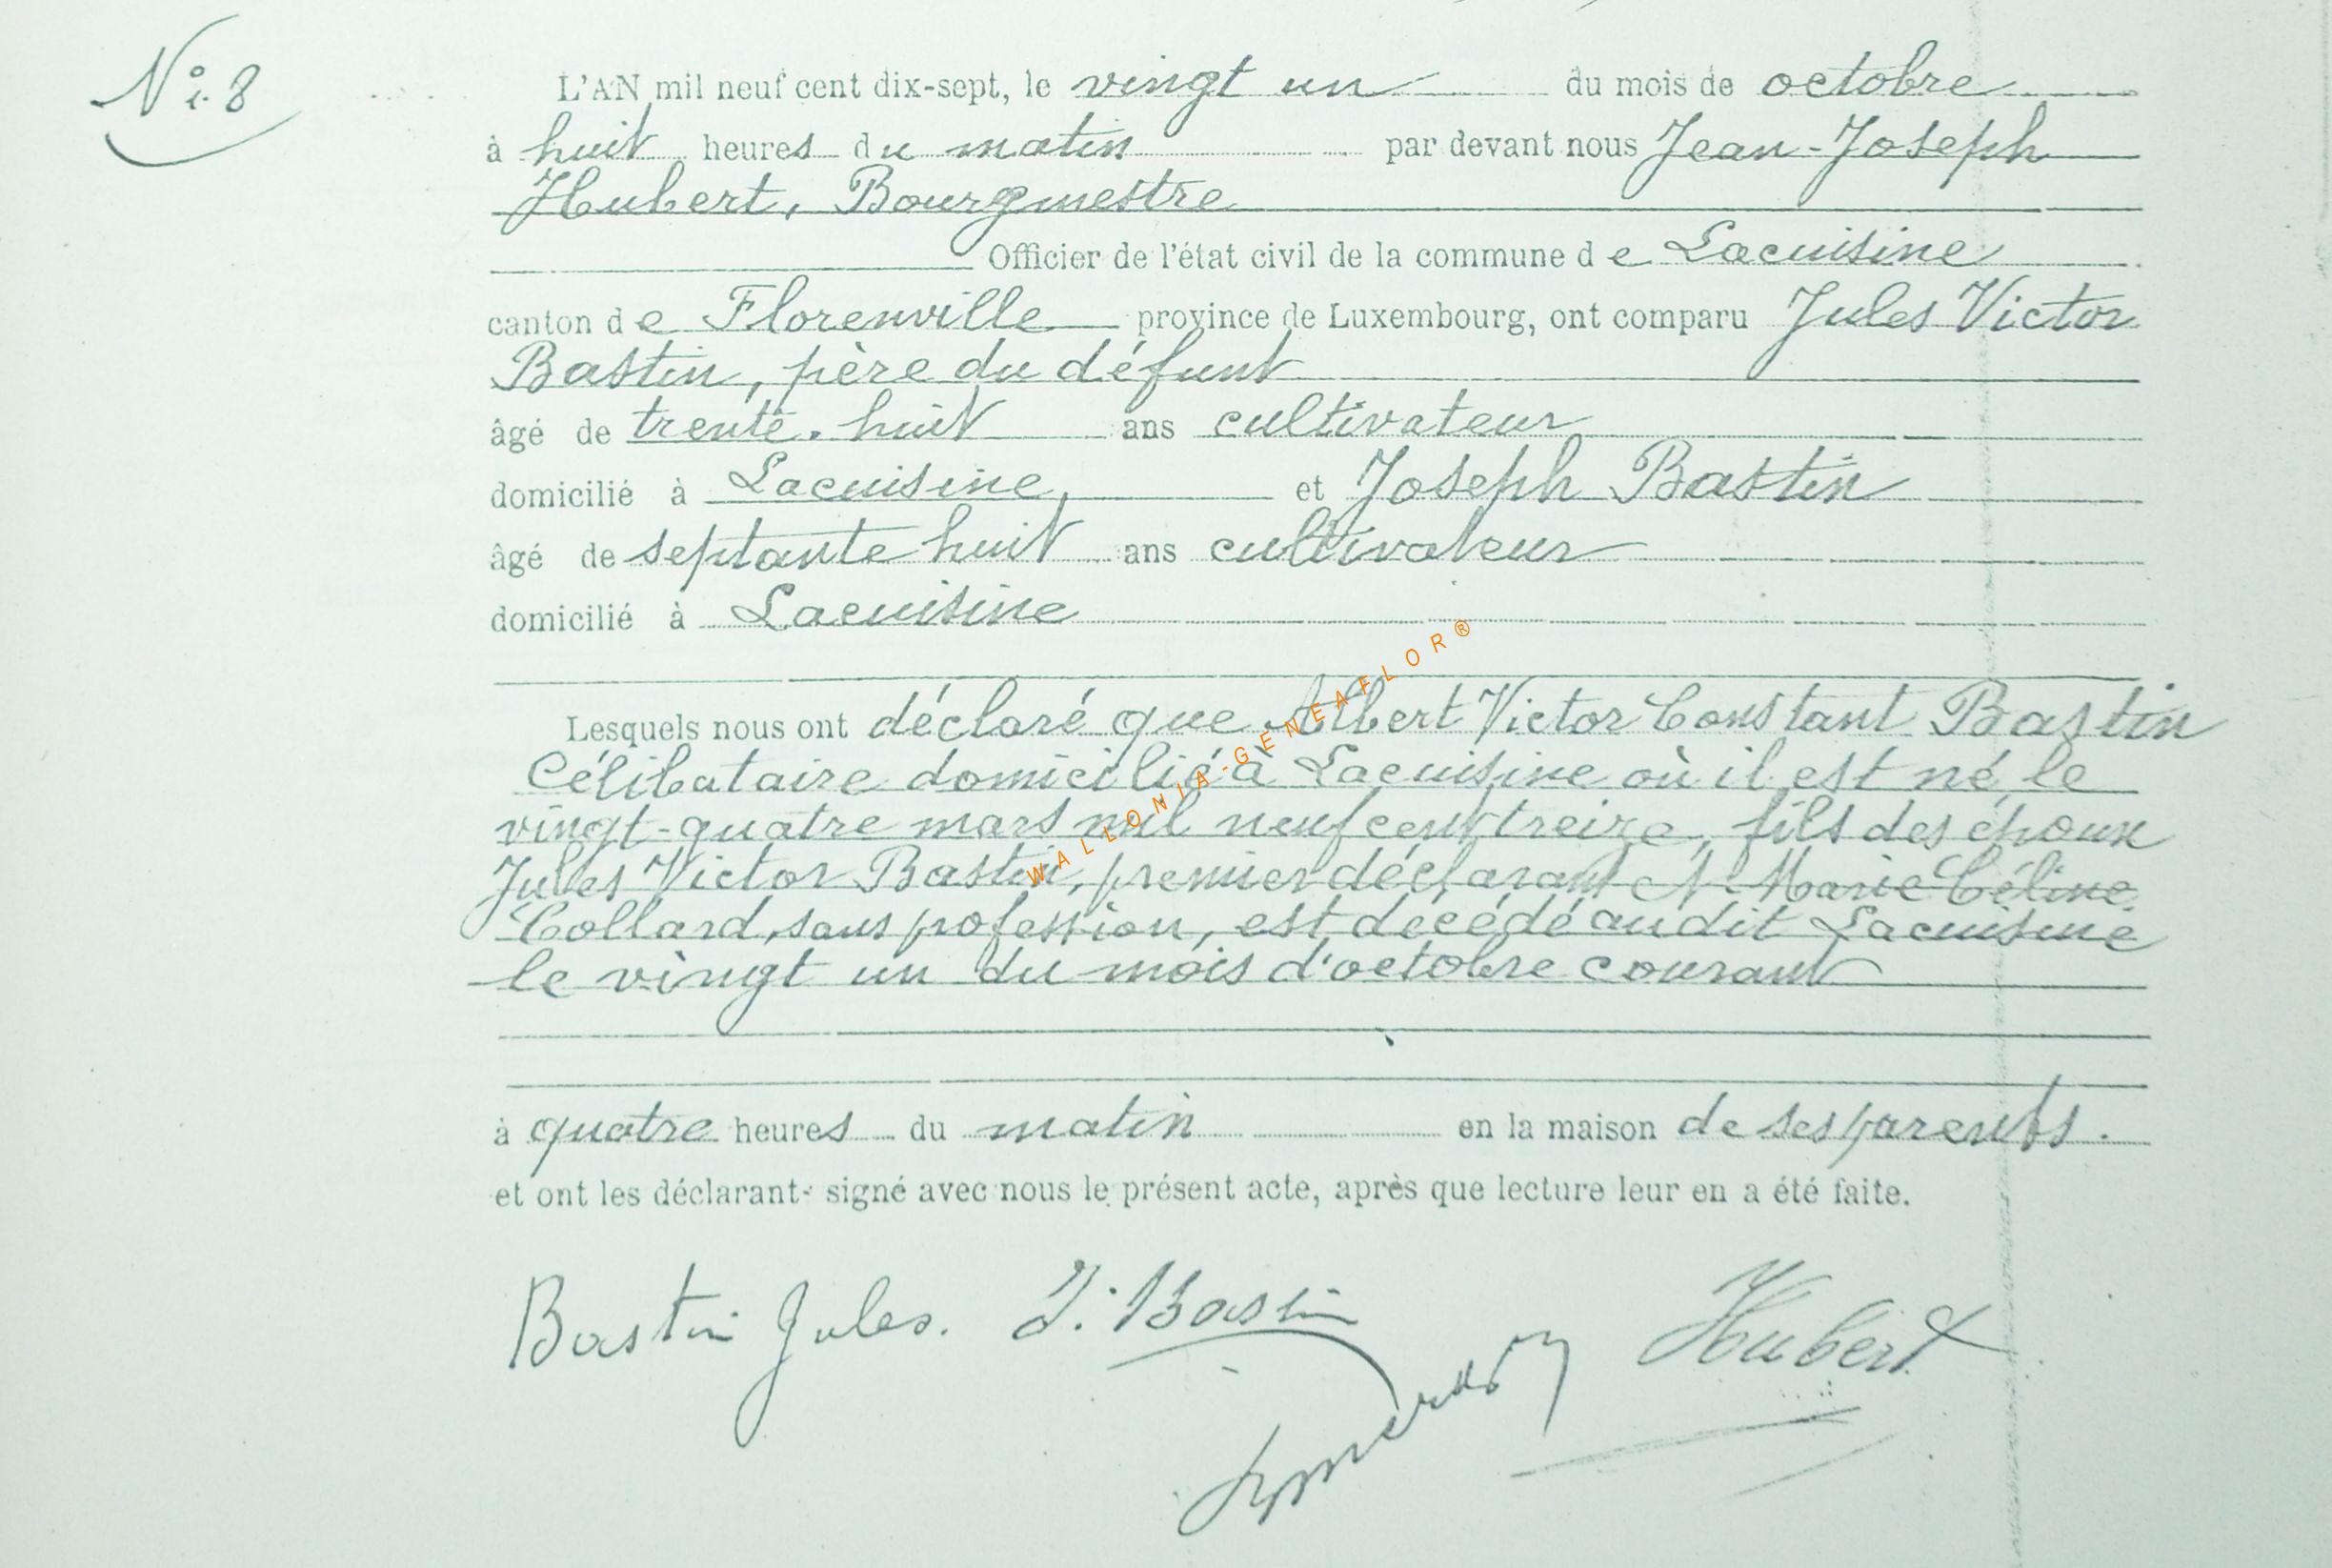 N° 8
L'AN mil neuf cent dix-sept, le vingt un du mois de octobre
à huit heures du matin par devant nous Jean-Joseph
Hubert, Bourgmestre
Officier de l'état civil de la commune de Lacuisine
canton de Florenville province de Luxembourg, ont comparu Jules Victor
Bastin, père du défunt
âgé de trente-huit ans cultivateur
domicilié à Lacuisine, et Joseph Bastin
âgé de septante huit ans cultivateur
domicilié à Lacuisine
Lesquels nous ont déclaré que Albert Victor Constant Bastin
Célibataire domicilié à Lacuisine où il est né le
vingt-quatre mars mil neuf cent treize, fils des époux
Jules Victor Bastin, premier déclarant et Marie Céline
Collard, sans pofession, est decédé audit Lacuisine
le vingt un du mois d'octobre courant
à quatre heures du matin en la maison de ses parents.
et ont les déclarant signé avec nous le présent acte, après que lecture leur en a été faite.
Bastin Jules. J. Bastin Hubert
WALLONIA-GENEAFLOR®